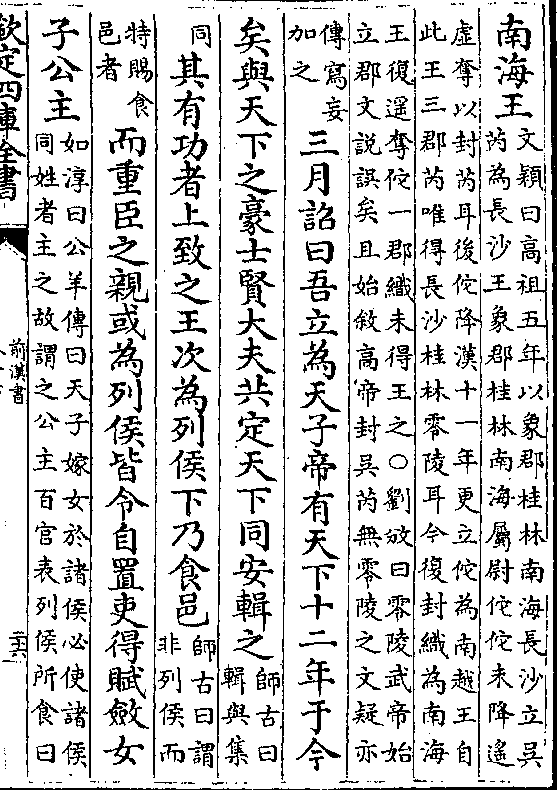 南海王
文穎曰高祖五年以象郡桂林南海長沙立吳
芮為長沙王象郡桂林南海屬尉佗佗未降遙
虛奪以封芮耳後佗降漢十一年更立佗為南越王自
此王三郡芮唯得長沙桂林零陵耳今復封織為南海
王復遥奪佗一郡織未得王之○劉攽曰零陵武帝始
立郡文説誤矣且始敘高帝封吳芮無零陵之文疑亦
傳寫妄
加之
三月詔曰吾立為天子帝有天下十二年于今
矣與天下之豪士賢大夫共定天下同安輯之
師古曰
輯與集
同
其有功者上致之王次為列侯下乃食邑
師古曰謂
非列侯而
特賜食
邑者
而重臣之親或為列侯皆令自置吏得賦斂女
子公主
如淳曰公羊傳曰天子嫁女於諸侯必使諸侯
同姓者主之故謂之公主百官表列侯所食曰
欽定四庫全書
前漢書